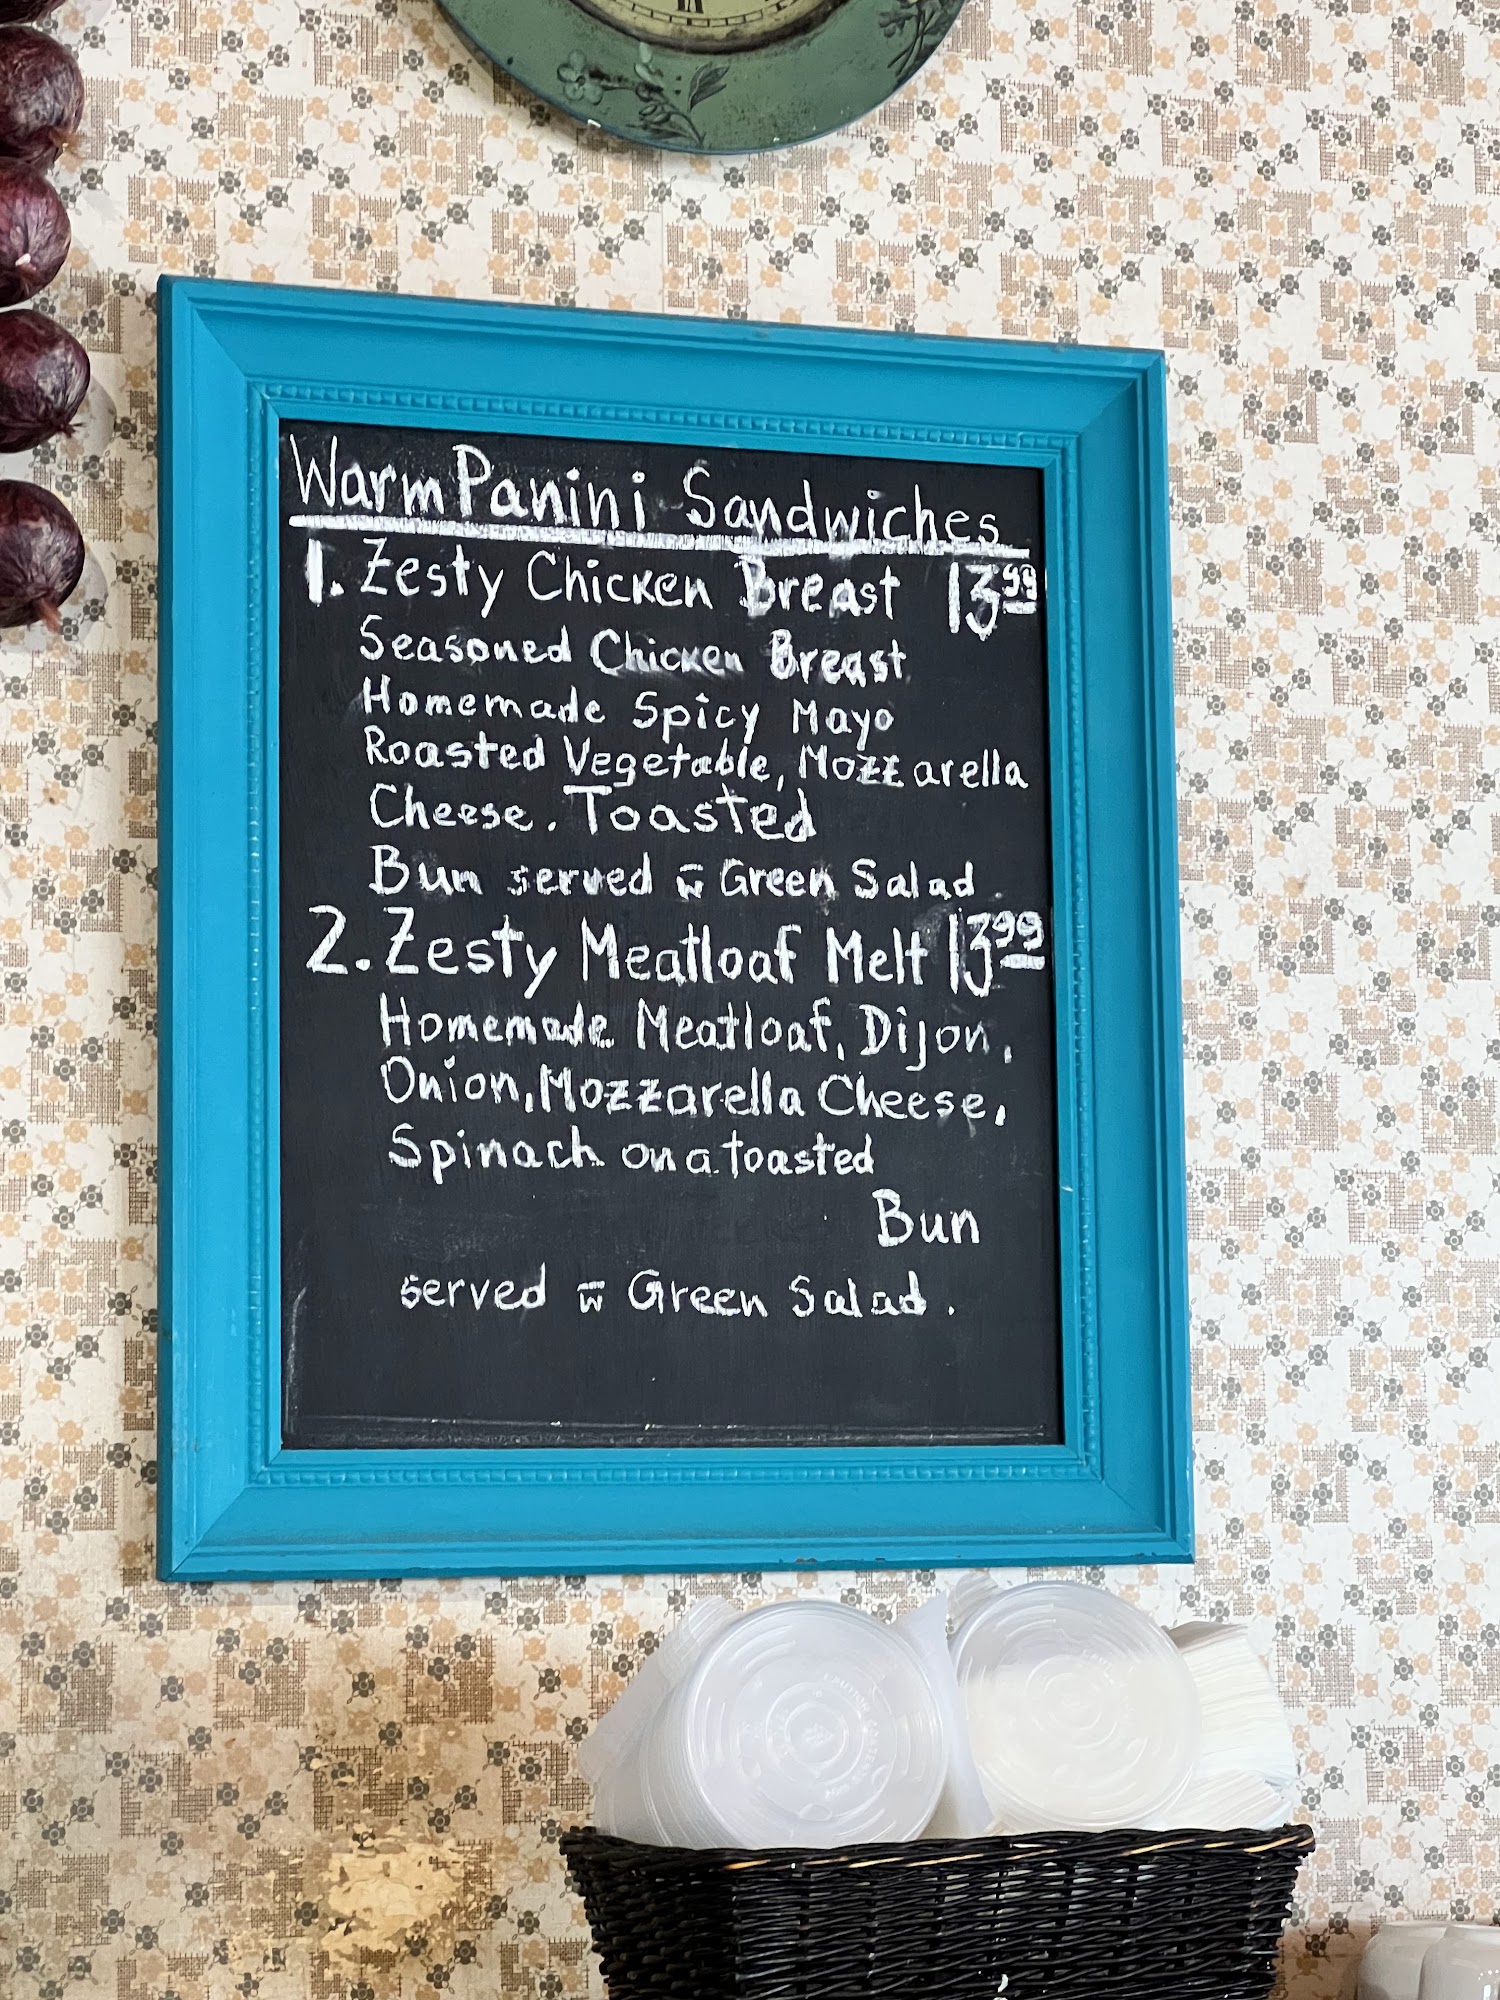 Warm Panini Sandwiches
1. Zesty Chicken Breast 13.99
Seasoned Chicken Breast
Homemade Spicy Mayo
Roasted Vegetable, Mozzarella
Cheese. Toasted
Bun served w̅ Green Salad
2. Zesty Meatloaf Melt 13.99
Homemade Meatloaf, Dijon,
Onion, Mozzarella Cheese,
Spinach on a toasted
Bun
served w̅ Green Salad.